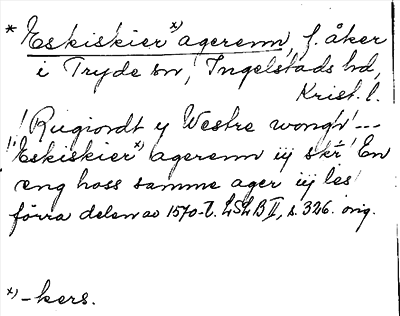 * Eskiskier x) agerenn, f. åker
i Tryde sn, Ingelstads hd,
Krist. l.
! Rugiordt y Westre wongh! ---
!: Eskiskier x) agerenn iij skr̄ En
eng hoss samme ager iij les
förra delen av 1570-t. LSLB II, s. 326. orig.
x) -kers.